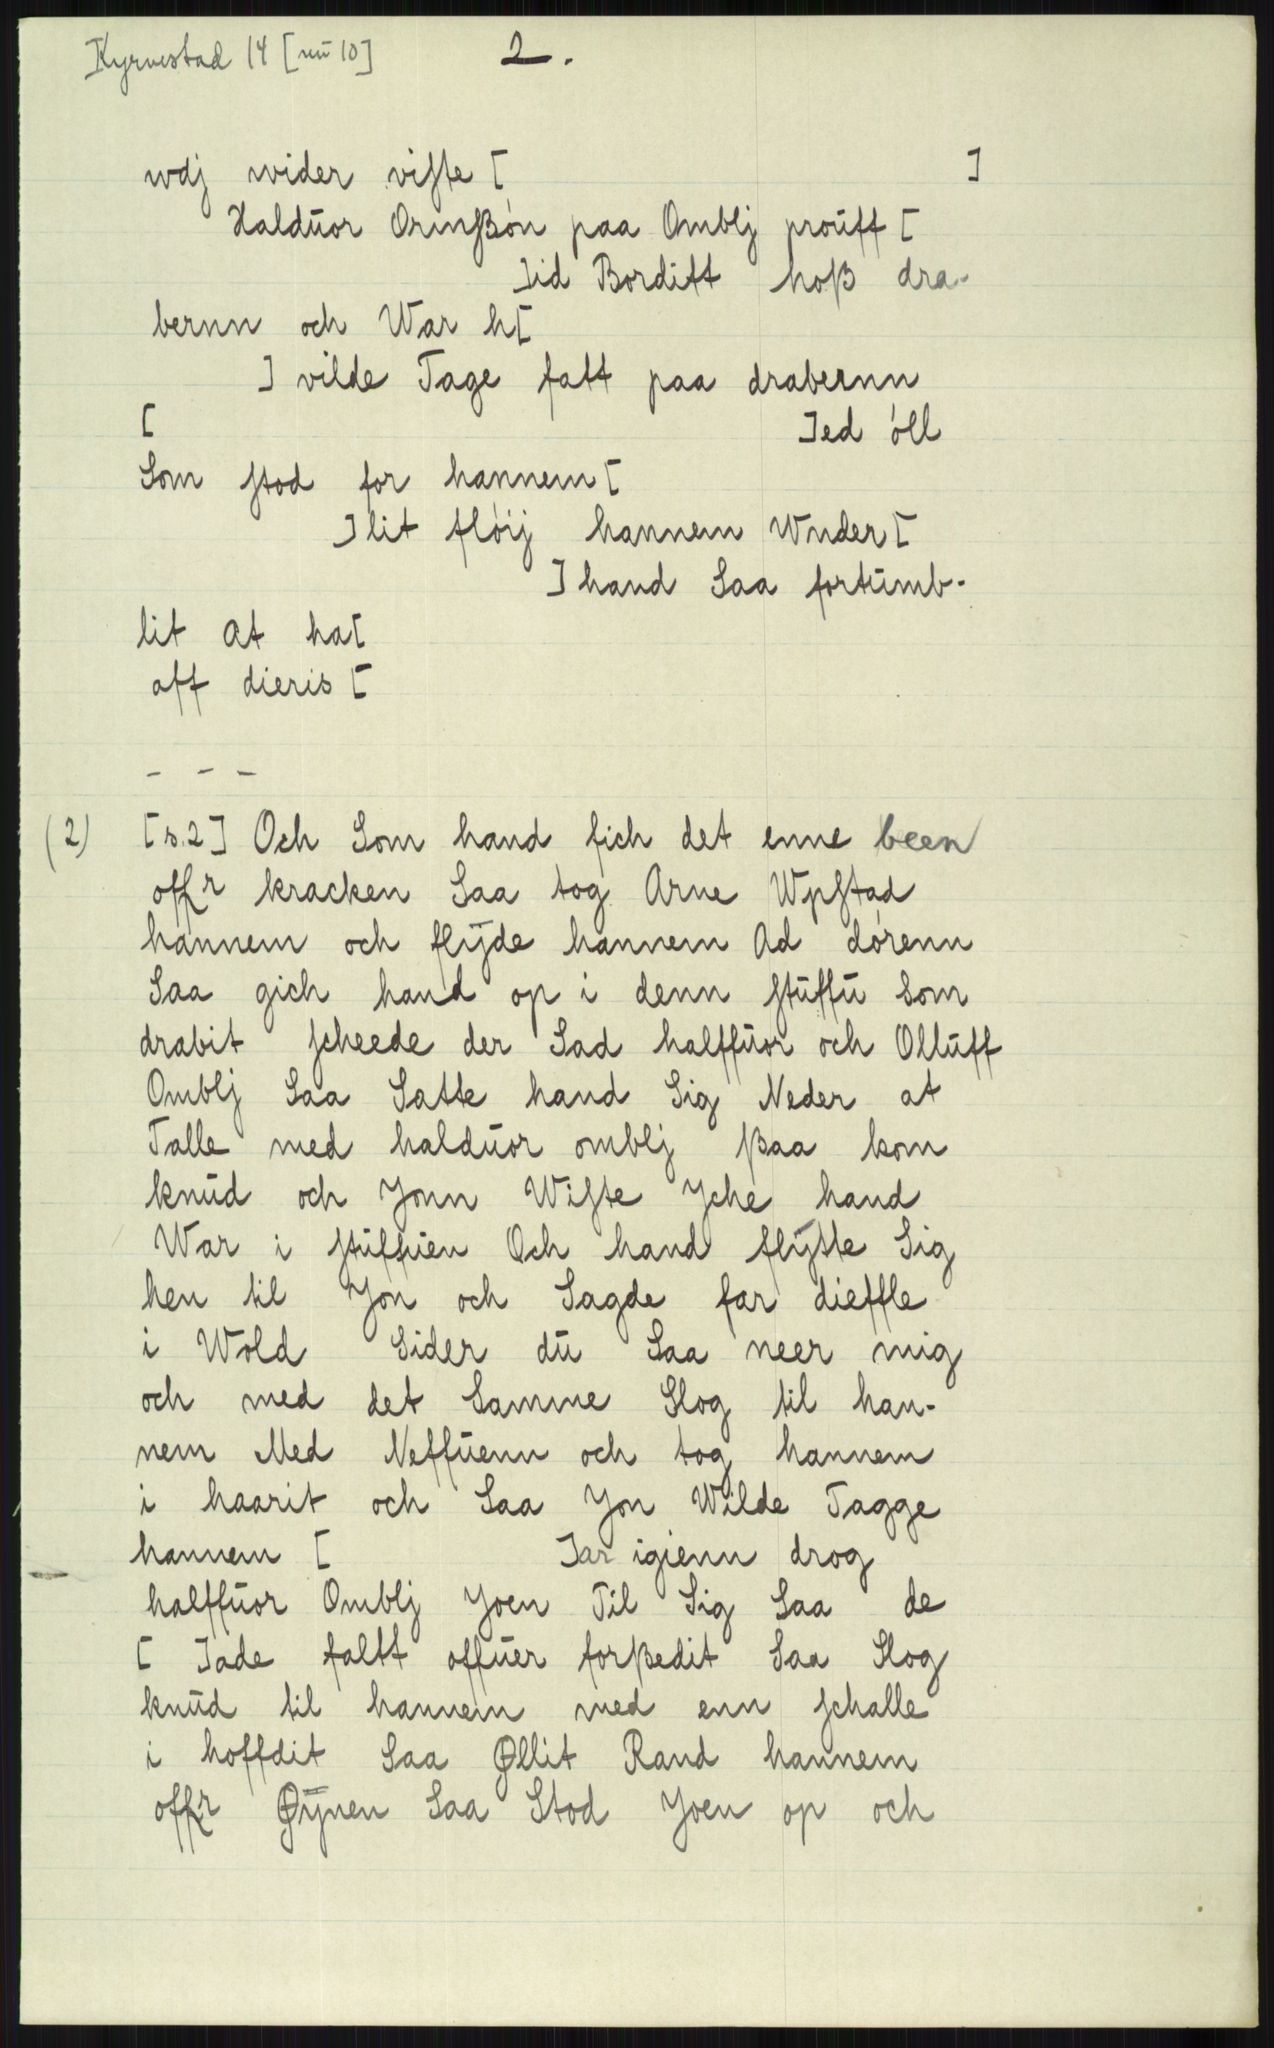 Kyrvestad 14 [nū 10]
2.
wdj wider viste [ ]
Haldūor Ormßón paa Omblj proūff [
]id Bordift hoß dra-
bernn och War h[
] vilde Tage fatt paa drabernn
[ ]ed óll
Som stod for hannem [
]lit flóij hannem Wnder [
] hand Saa fortūmb-
lit at ha[
aff dieris [
- - -
(2) [s.2] Och Som hand fich det enne been
offr kracken Saa tog Arne Wpstad
hannem och flÿde hannem Ad dórenn
Saa gich hand op i denn stūffū Som
drabit scheede der Sad halffūor och Ollūff
Omblj Saa Satte hand Sig Neder at
Talle med haldūor omblj ßaa kom
knūd och Jonn Wiste Jche hand
War i stūffūen Och hand flÿtte Sig
hen til Jon och Sagde far dieffle
i Wold Sider dū Saa neer mig
och med det Samme Slog til han-
nem Med Neffūenn och tog hannem
i haarit och Saa Jon Wilde Tagge
hannem [ ]ar igienn drog
halffūor Omblj Joen Til Sig Saa de
[ ]ade faltt offūer forßedit Saa Slog
knūd til hannem med enn schalle
i hoffdit Saa Øllit Rand hannem
offr Øÿnen Saa Stod Joen op och